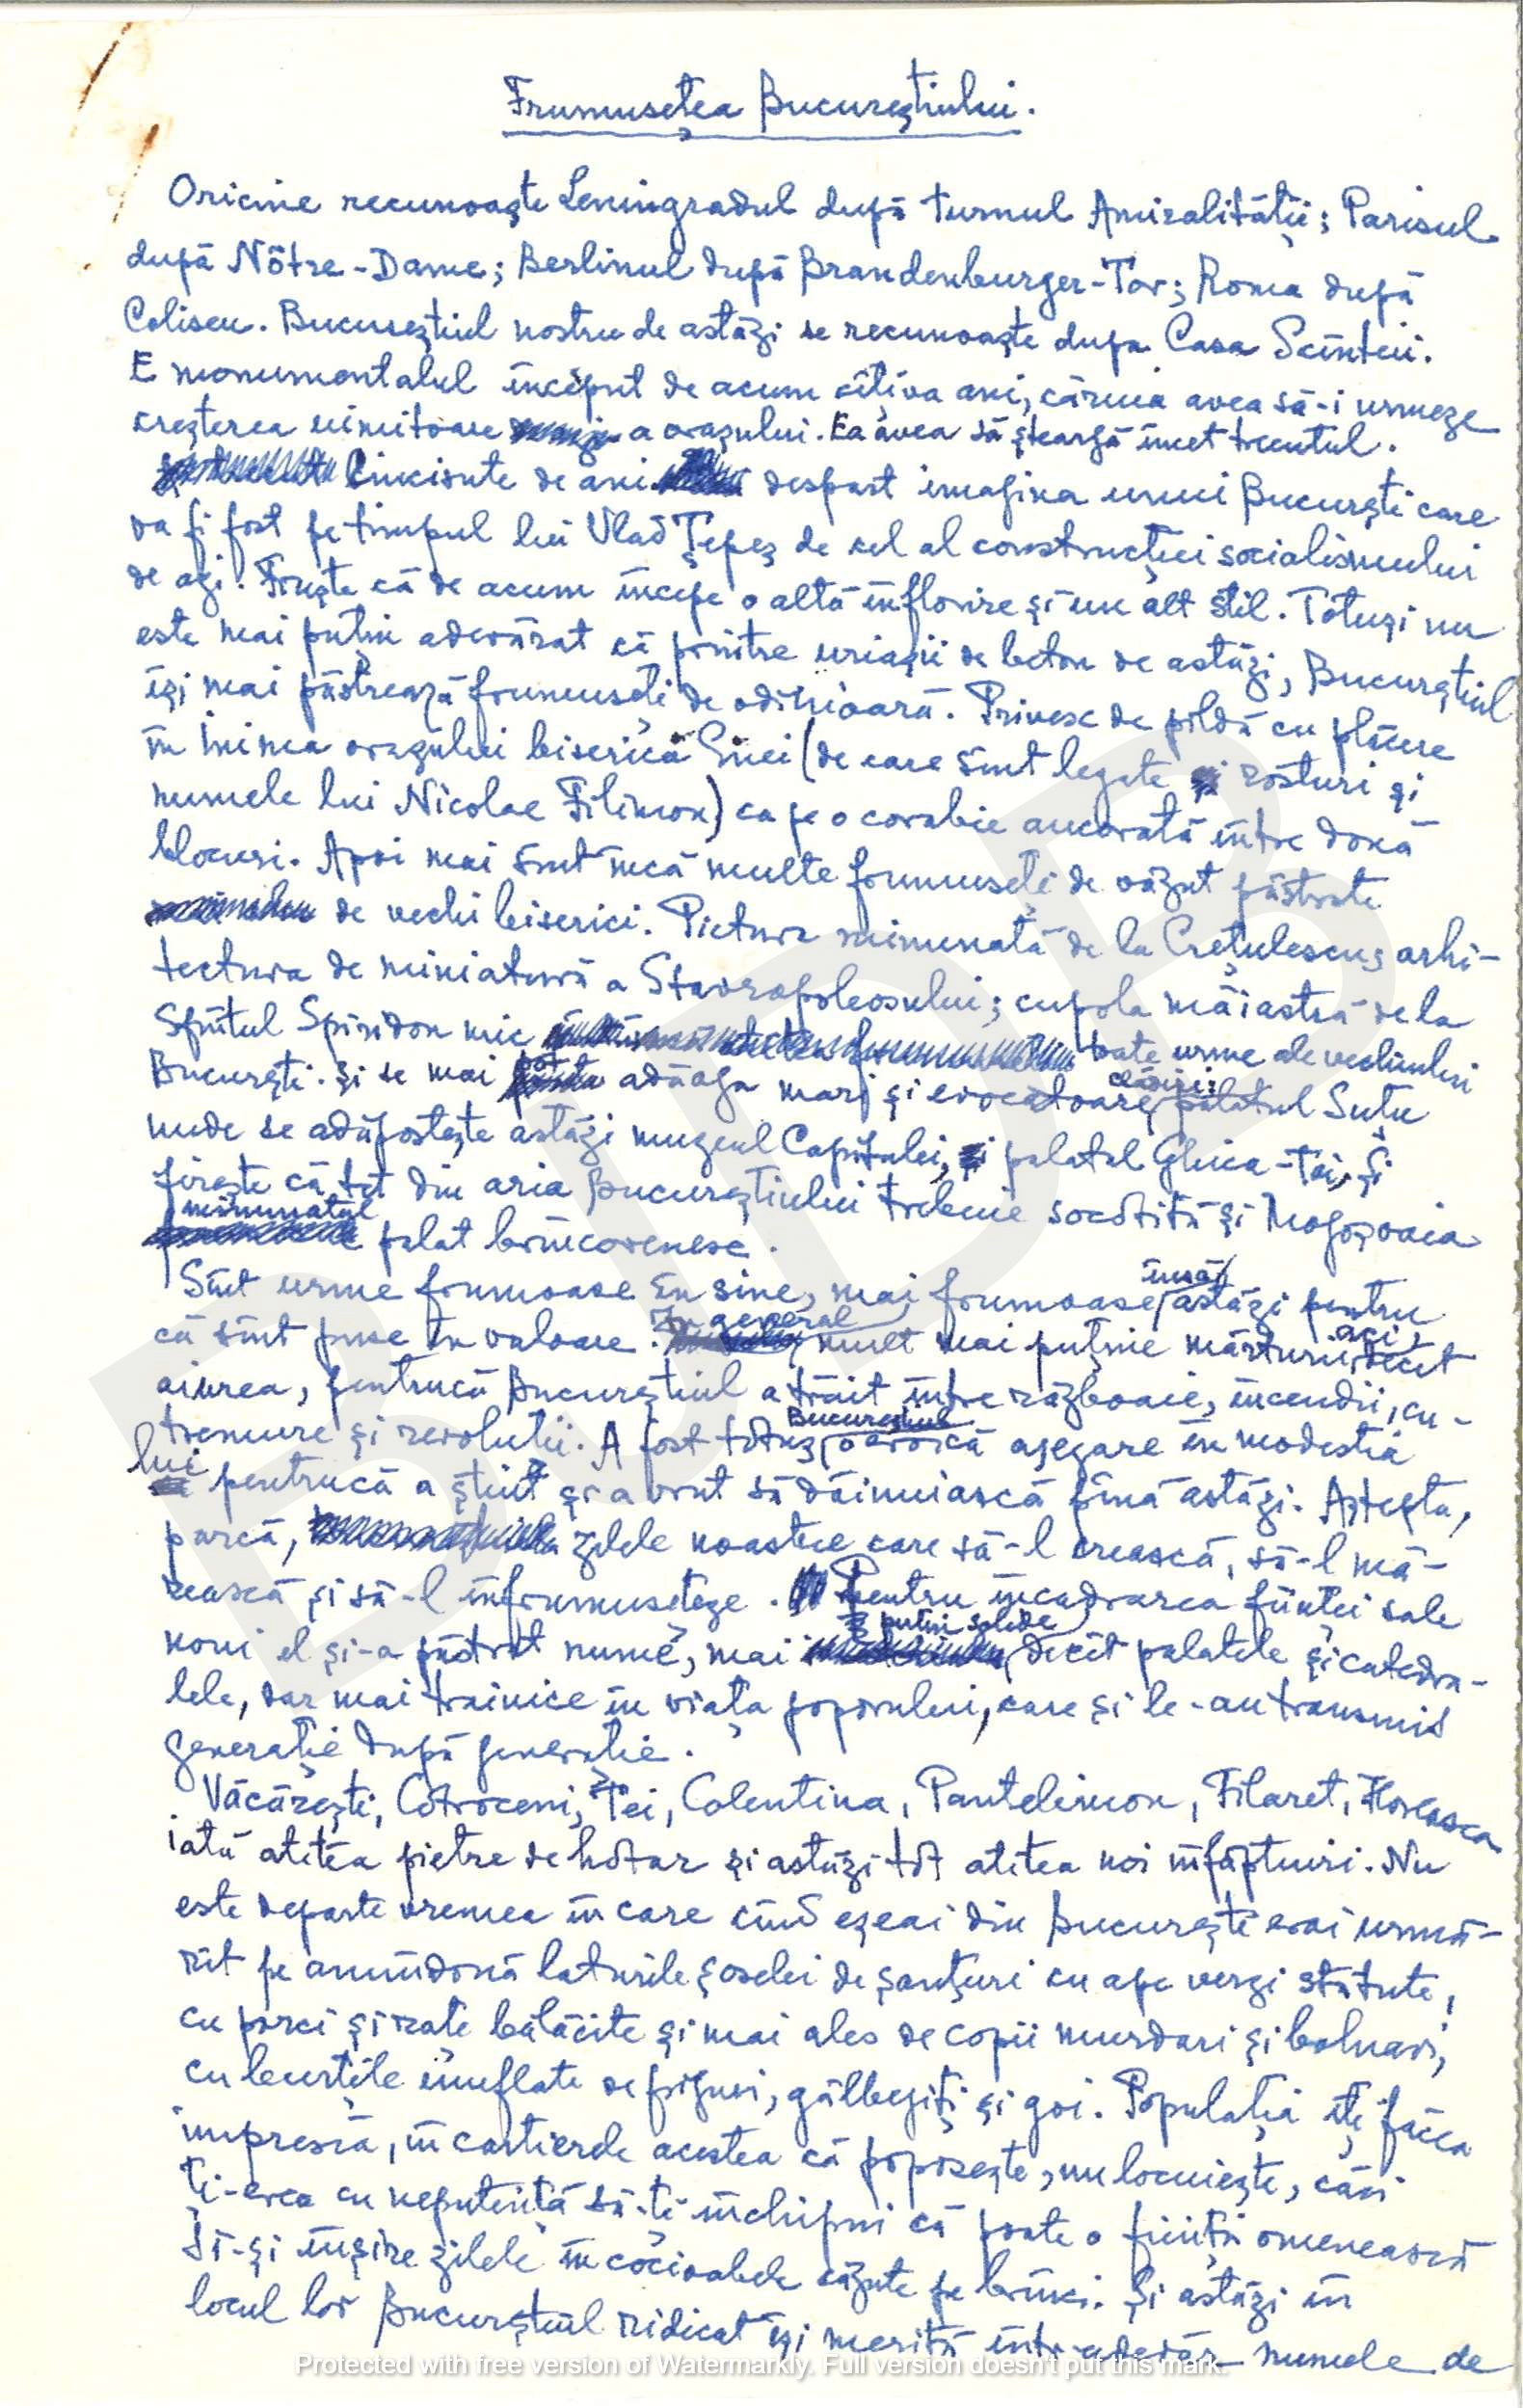 Frumusețea Bucureștiului.
Oricine recunoaște Leningradul după turnul Amiralității; Parisul
după Nôtre-Dame; Berlinul după Brandenburger-Tor; Roma după
Coliseu. Bucureștiul nostru de astăzi se recunoaște dupa Casa Scînteii.
E monumentalul început de acum cîțiva ani, căruia avea să-i urmeze
creșterea uimitoare a orașului. Ea avea să șteargă încet trecutul.
Cincisute de ani despart imaginea unui București care
va fi fost pe timpul lui Vlad Țepeș de cel al construcției socialismului
de azi. Firește că de acum începe o altă înflorire și un alt stil. Totuși nu
este mai puțin adevărat că printre uriașii de beton de astăzi, Bucureștiul
își mai păstrează frumuseți de odinioară. Privesc de pildă cu plăcere
în inima orașului biserica Enei (de care sînt legate rosturi și
numele lui Nicolae Filimon) ca pe o corabie ancorată între două
blocuri. Apoi mai sînt încă multe frumuseți de văzut păstrate
de vechi biserici. Pictura minunată de la Crețulescu; arhi-
tectura de miniatură a Stavropoleosului; cupola măiastră de la
Sfîntul Spiridon mic toate urme ale vechiului
București. Și se mai pot adăoga mari și evocatoare clădiri: palatul Suțu
unde se adăpostește astăzi muzeul Capitalei, palatul Ghica-Tei, și
firește că tot din aria Bucureștiului trebuie socotită și Mogoșoaia
minunatul palat brîncovenesc.
Sînt urme frumoase în sine, mai frumoase însă astăzi pentru
că sînt puse în valoare. În general mult mai puține mărturii aci, decît
aiurea, pentrucă Bucureștiul a trăit între războaie, incendii, cu-
tremure și revoluții. A fost totuș Bucureștiul o eroică așezare în modestia
lui pentrucă a știut și a vrut să dăinuiască pînă astăzi. Aștepta,
parcă, zilele noastre care să-l crească, să-l mă-
rească și să-l înfrumusețeze. Pentru încadrarea ființei sale
noui el și-a păstrat nume, mai puțin solide decît palatele și catedra-
lele, dar mai trainice în viața poporului, care și le-au transmis
generație după generație.
Văcărești, Cotroceni, Tei, Colentina, Pantelimon, Filaret, Floreasca
iată atîtea pietre de hotar și astăzi tot atîtea noi înfăptuiri. Nu
este departe vremea în care cînd eșeai din București erai urmă-
rit pe amîndouă laturile șoselei de șanțuri cu ape verzi stătute,
cu porci și rațe bălăcite și mai ales de copii murdari și bolnavi,
cu burțile umflate de friguri, gălbejiți și goi. Populația îți făcea
impresia, în cartierele acestea că poposește, nu locuiește, căci
ți-era cu neputință să-ți închipui că poate o ființă omenească
să-și înșire zilele în cocioabele căzute pe brînci. Și astăzi în
locul lor Bucureștiul ridicat își merită într-adevăr numele de
BJDB
Protected with free version of Watermarkly. Full version doesn't put this mark.